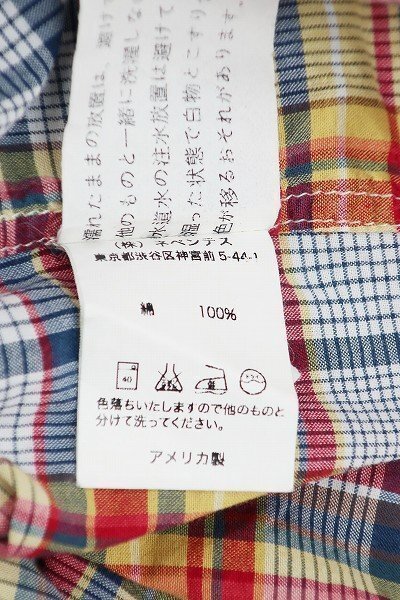 濡れたままの放置は、避けて
他のものと一緒に洗濯しな
水道水の注水放置は避けて
湿った状態で白物とこすり
色が移るおそれがあります。
(株) ネペンテス
東京都渋谷区神宮前5-44-1
綿 100%
40
ドライ
色落ちいたしますので他のものと
分けて洗ってください。
アメリカ製